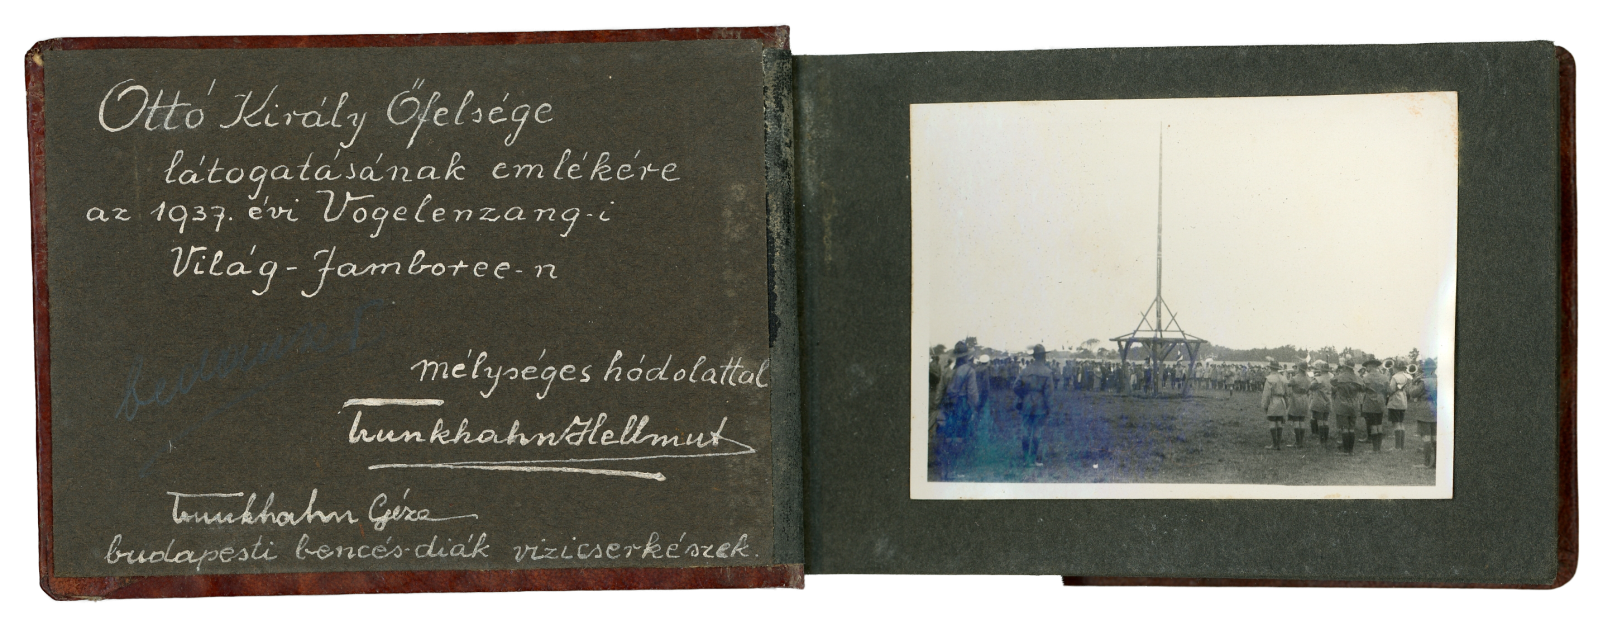 Ottó Király Őfelsége
látogatásának emlékére
az 1937. évi Vogelenzang-i
Világ-Jamboree-n
mélységes hódolattal
Trunkhahn Hellmut
Trunkhahn Géza
budapesti bencés-diák vizicserkészek.